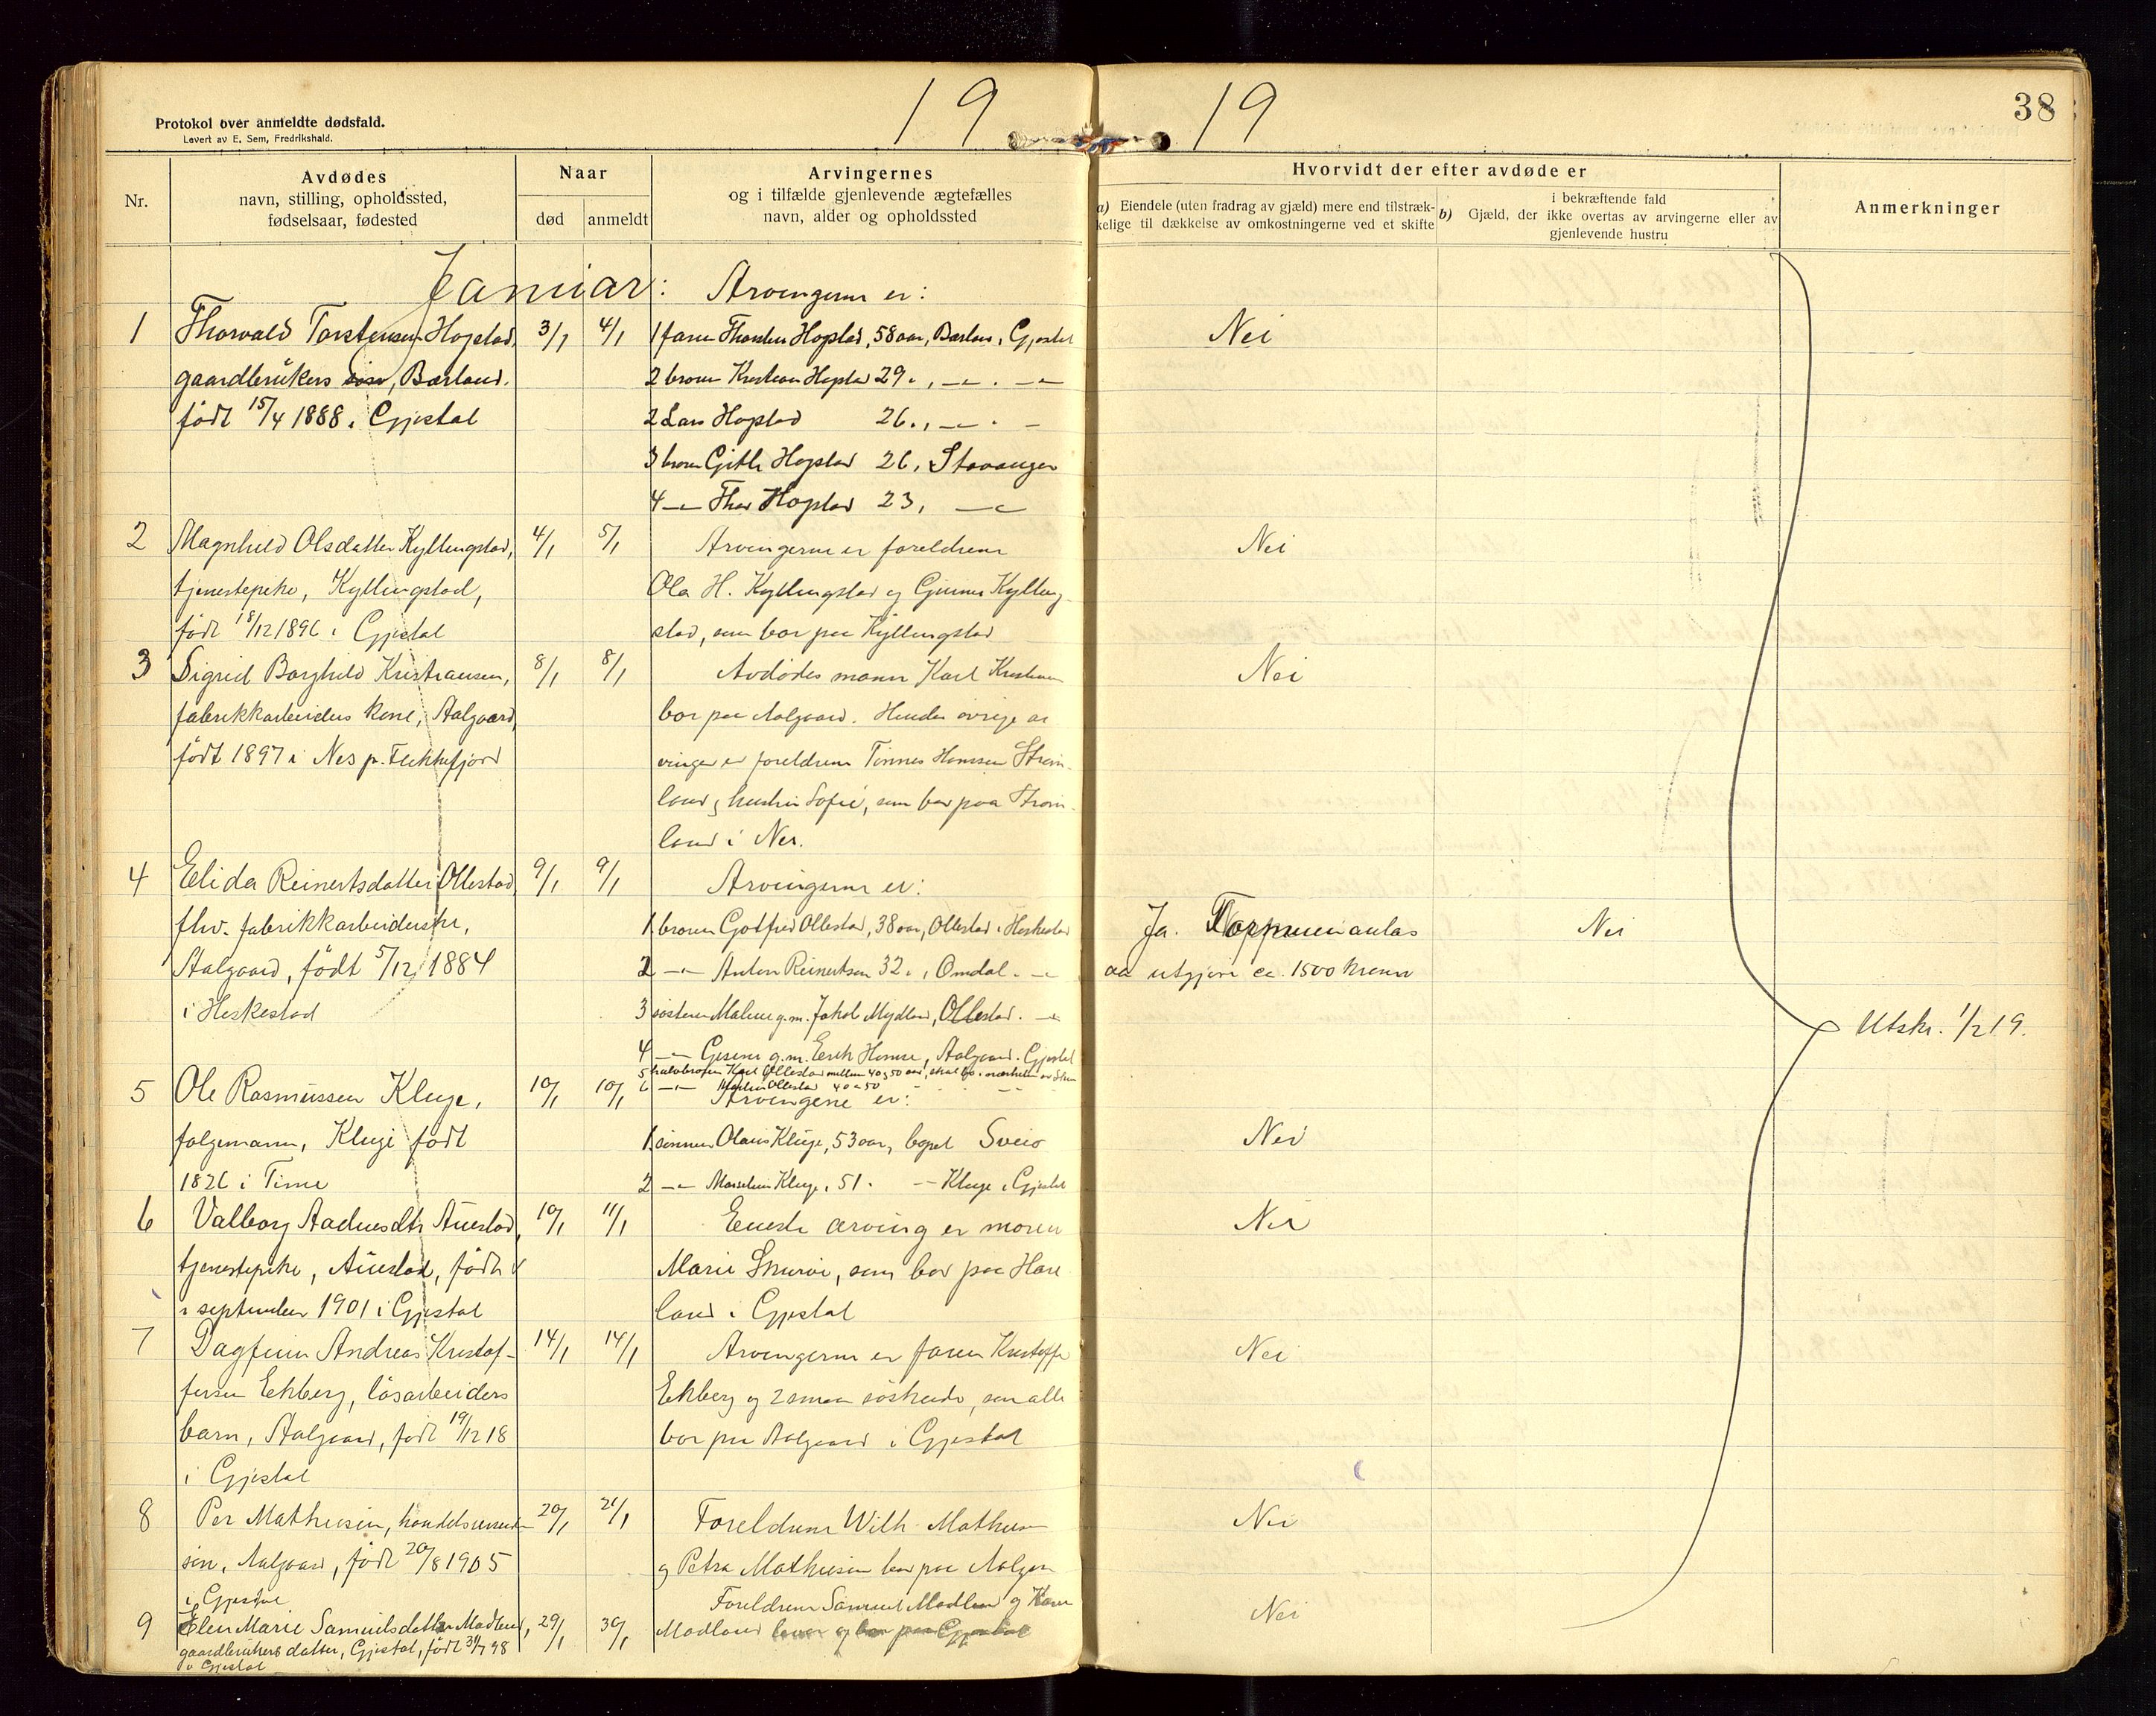 19 19
38
Protokol over anmeldte dødsfald.
Levert av E. Sem, Fredrikshald.
Nr.
Avdødes
navn, stilling, opholdssted,
fødselsaar, fødested
Naar
død
anmeldt
Arvingernes
og i tilfælde gjenlevende ægtefælles
navn, alder og opholdssted
Hvorvidt der efter avdøde er
a) Eiendele (uten fradrag av gjæld) mere end tilstræk-
kelige til dækkelse av omkostningerne ved et skifte
i bekræftende fald
b) Gjæld, der ikke overtas av arvingerne eller av
gjenlevende hustru
Anmerkninger
Januar: Arvingerne er:
1 Thorvald Torstensen Hogstad, 3/1 4/1 1 faren Thorsten Hogstad, 58 aar, Bærland, Gjestal Nei
gaardbrukers søn, Bærland. 2 broren Kristian Hogstad 29
født 15/4 1888 i Gjestal 2 Lars Hogstad 26
3 broren Gitle Hogstad 26, Stavanger
4 Thor Hogstad 23,
2 Magnhild Olsdatter Kyllingstad, 4/1 5/1 Arvingerne er foreldrene Nei
tjenestepike, Kyllingstad, Ola H. Kyllingstad og Kylling-
født 18/12 1896 i Gjestal stad, som bor paa Kyllingstad
3 Sigrid Borghild Kristiansen, 8/1 8/1 Avdødes mann Karl Kristiansen Nei
fabrikkarbeiders kone, Aalgaard, bor paa Aalgaard. Hendes øvrige ar
født 1897 i Nes pr. Flekkefjord vinger er foreldrene Tønnes Hanssen Strøm-
land og hustru Sofie, som bor paa Strøm-
land i Nes.
4 Elida Reinertsdatter Ollestad, 9/1 9/1 Arvingerne er:
fhv. fabrikkarbeiderske, 1. broren Gotfred Ollestad, 38 aar, Ollestad i Heskestad Ja. Formuen antas Nei
Aalgaard, født 5/12 1884 2 Anton Reinertsen 32, Omdal aa utgjøre ca. 1500 kroner
i Heskestad 3 søsteren Malene g.m. Jakob Mydland, Ollestad.
Utskr. 1/2 19.
4 g.m. Erik Homse, Aalgaard i Gjestal
5 halvbroren Karl Ollestad mellem 40 og 50 aar, skal bo i nærheten av
6 Martin Ollestad 40 a 50
5 Ole Rasmussen Kluge, 10/1 10/1 Arvingene er:
følgemann, Kluge født 1. sønnen Olaus Kluge, 53 aar, bopæl Sveio Nei
1826 i Time 2 Kluge, 51. Kluge i Gjestal
6 Valborg Aadnesdtr Auestad, 10/1 11/1 Eneste arving er moren Nei
tjenestepike, Auestad, født Marie, som bor paa Have
i september 1901 i Gjestal land i Gjestal
7 Dagfinn Andreas Kristof- 14/1 14/1 Arvingerne er faren Kristoffer Nei
fersen Ekberg, løsarbeiders Ekberg og 2 smaa søskende, som alle
barn, Aalgaard, født 19/12 18 bor paa Aalgaard i Gjestal
i Gjestal
8 Per Mathiesen, 20/1 21/1 Foreldrene Wilh. Mathiesen Nei
søn, Aalgaard, født 20/8 1905 og Petra Mathiesen bor paa Aalgaard
i Gjestal
9 Elen Marie Samuelsdatter Madland, 29/1 30/1 Foreldrene Samuel Madland og Karen Nei
gaardbrukers datter, Gjestal, født Madland lever og bor paa Gjestal
i Gjestal